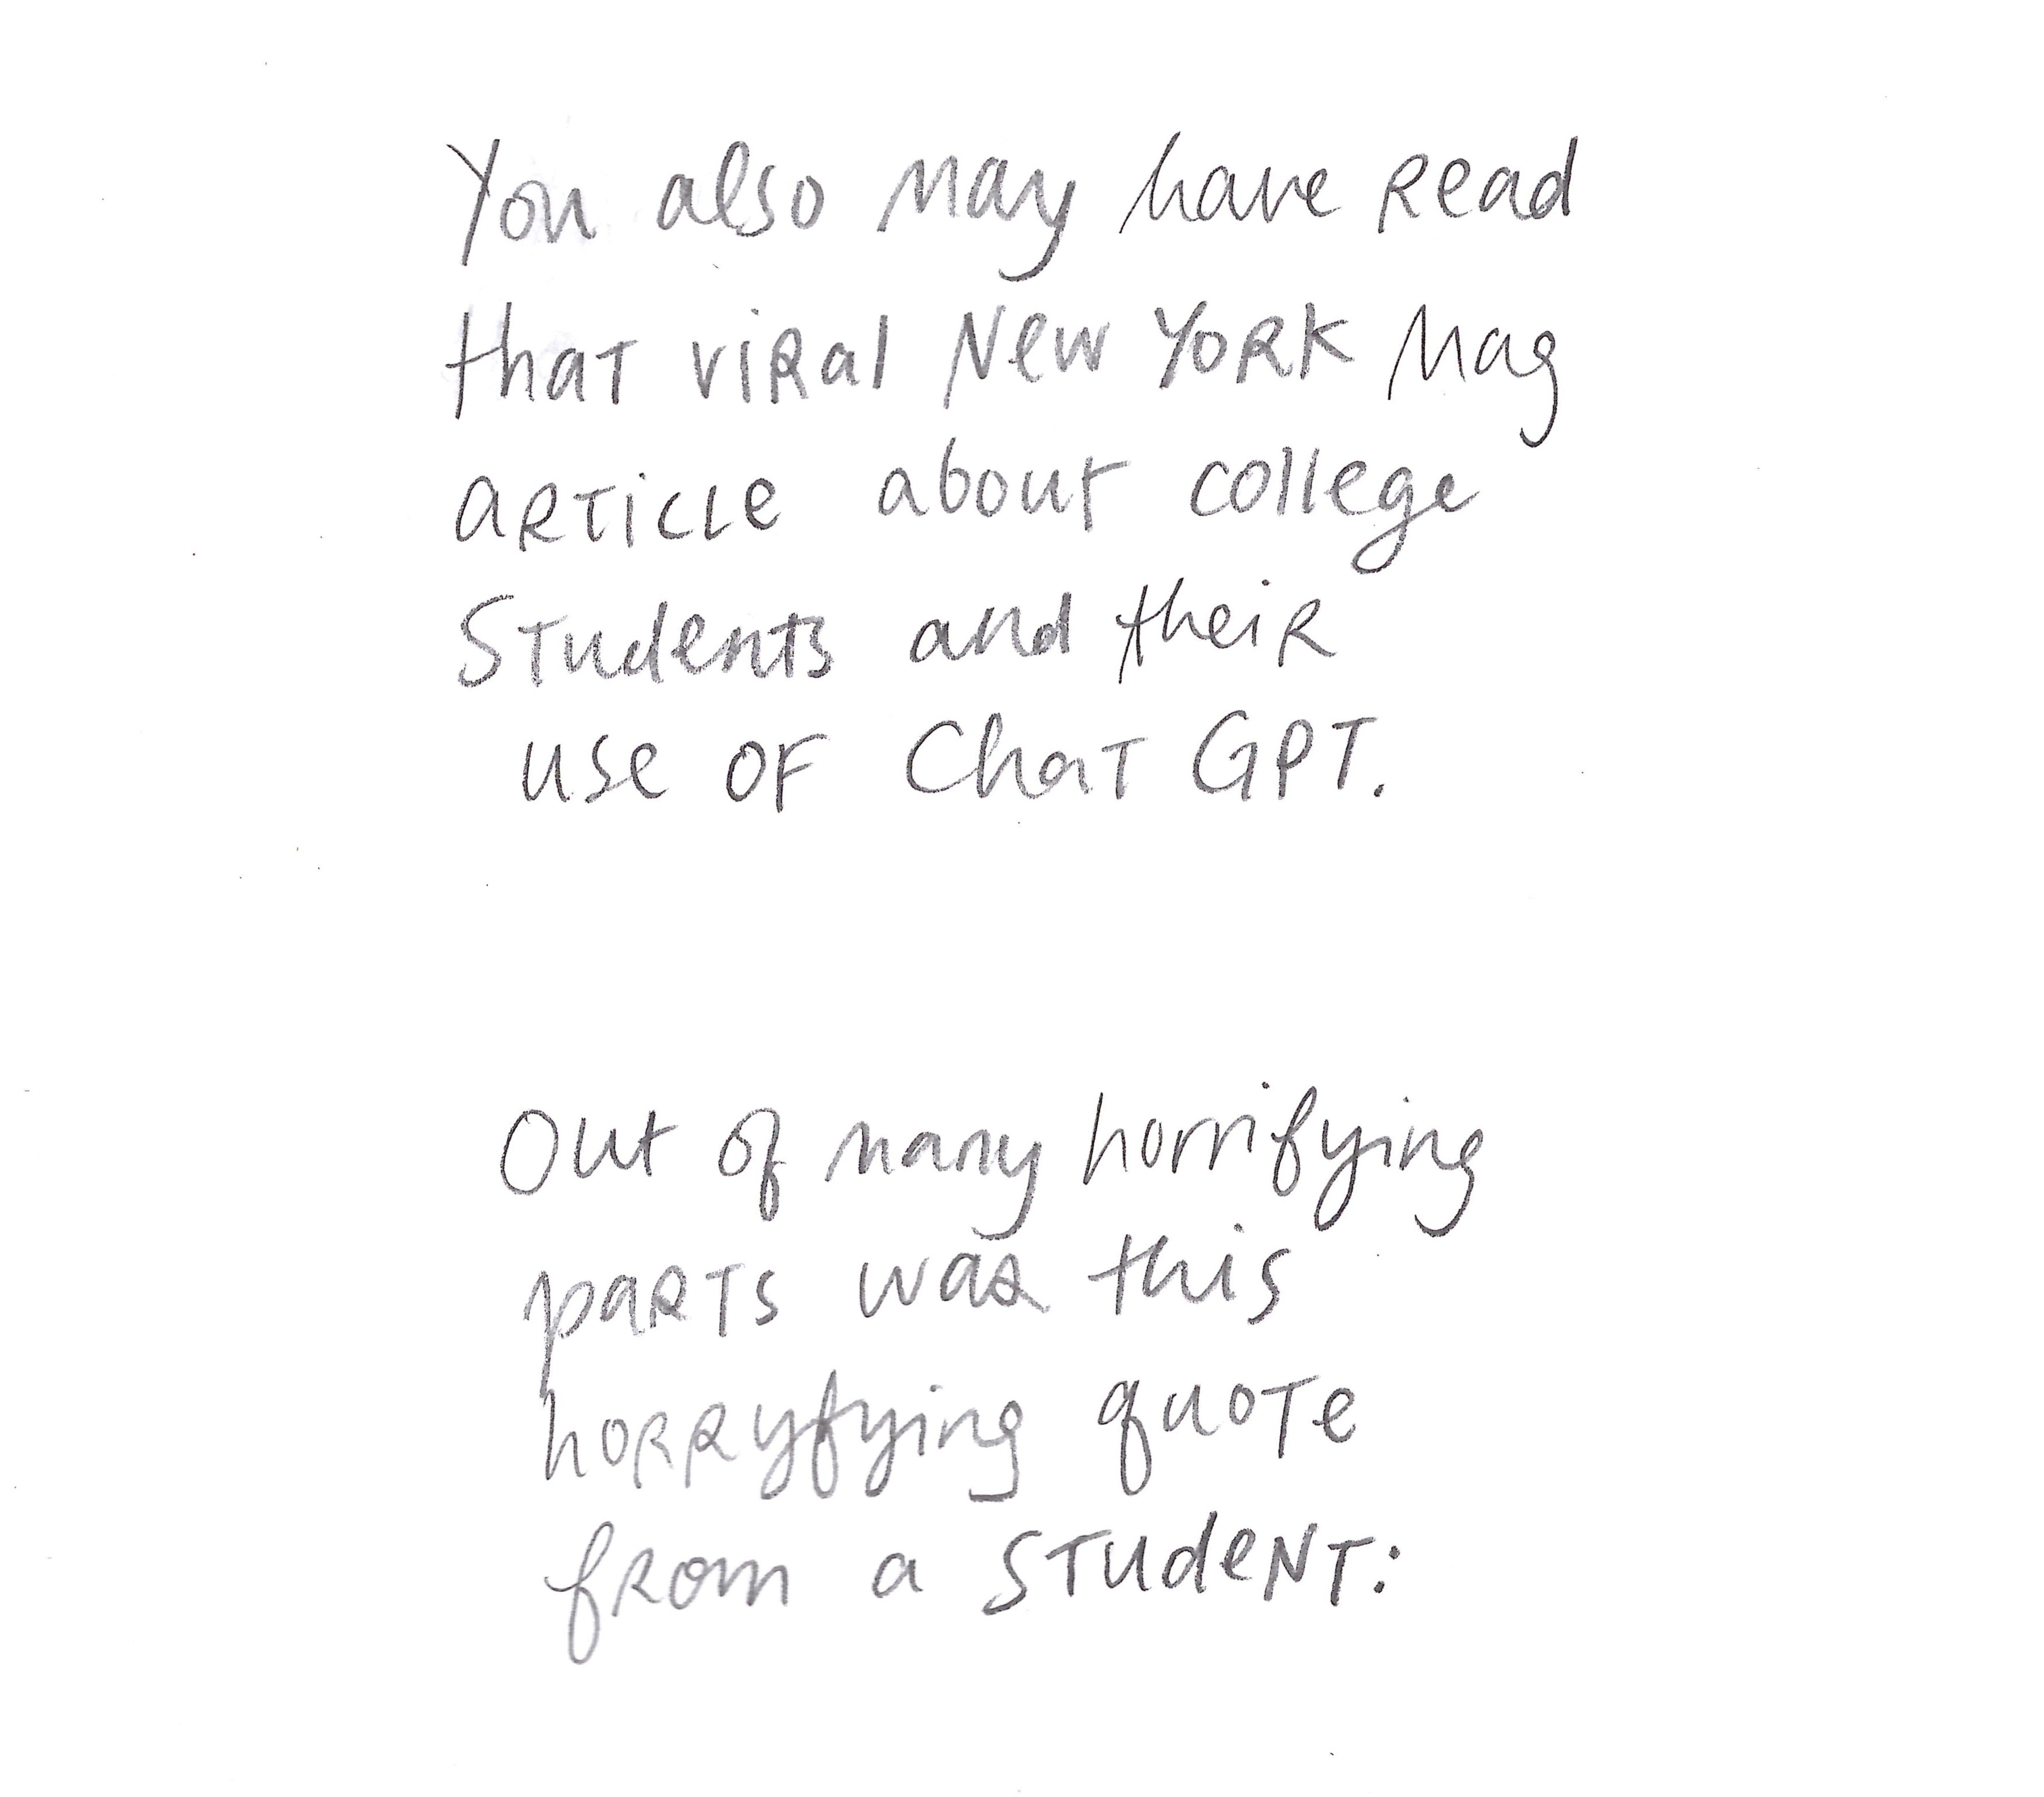 You also may have read
that viral New York Mag
article about college
students and their
use of Chat GPT.
Out of many horrifying
parts was this
horryfying quote
from a student: